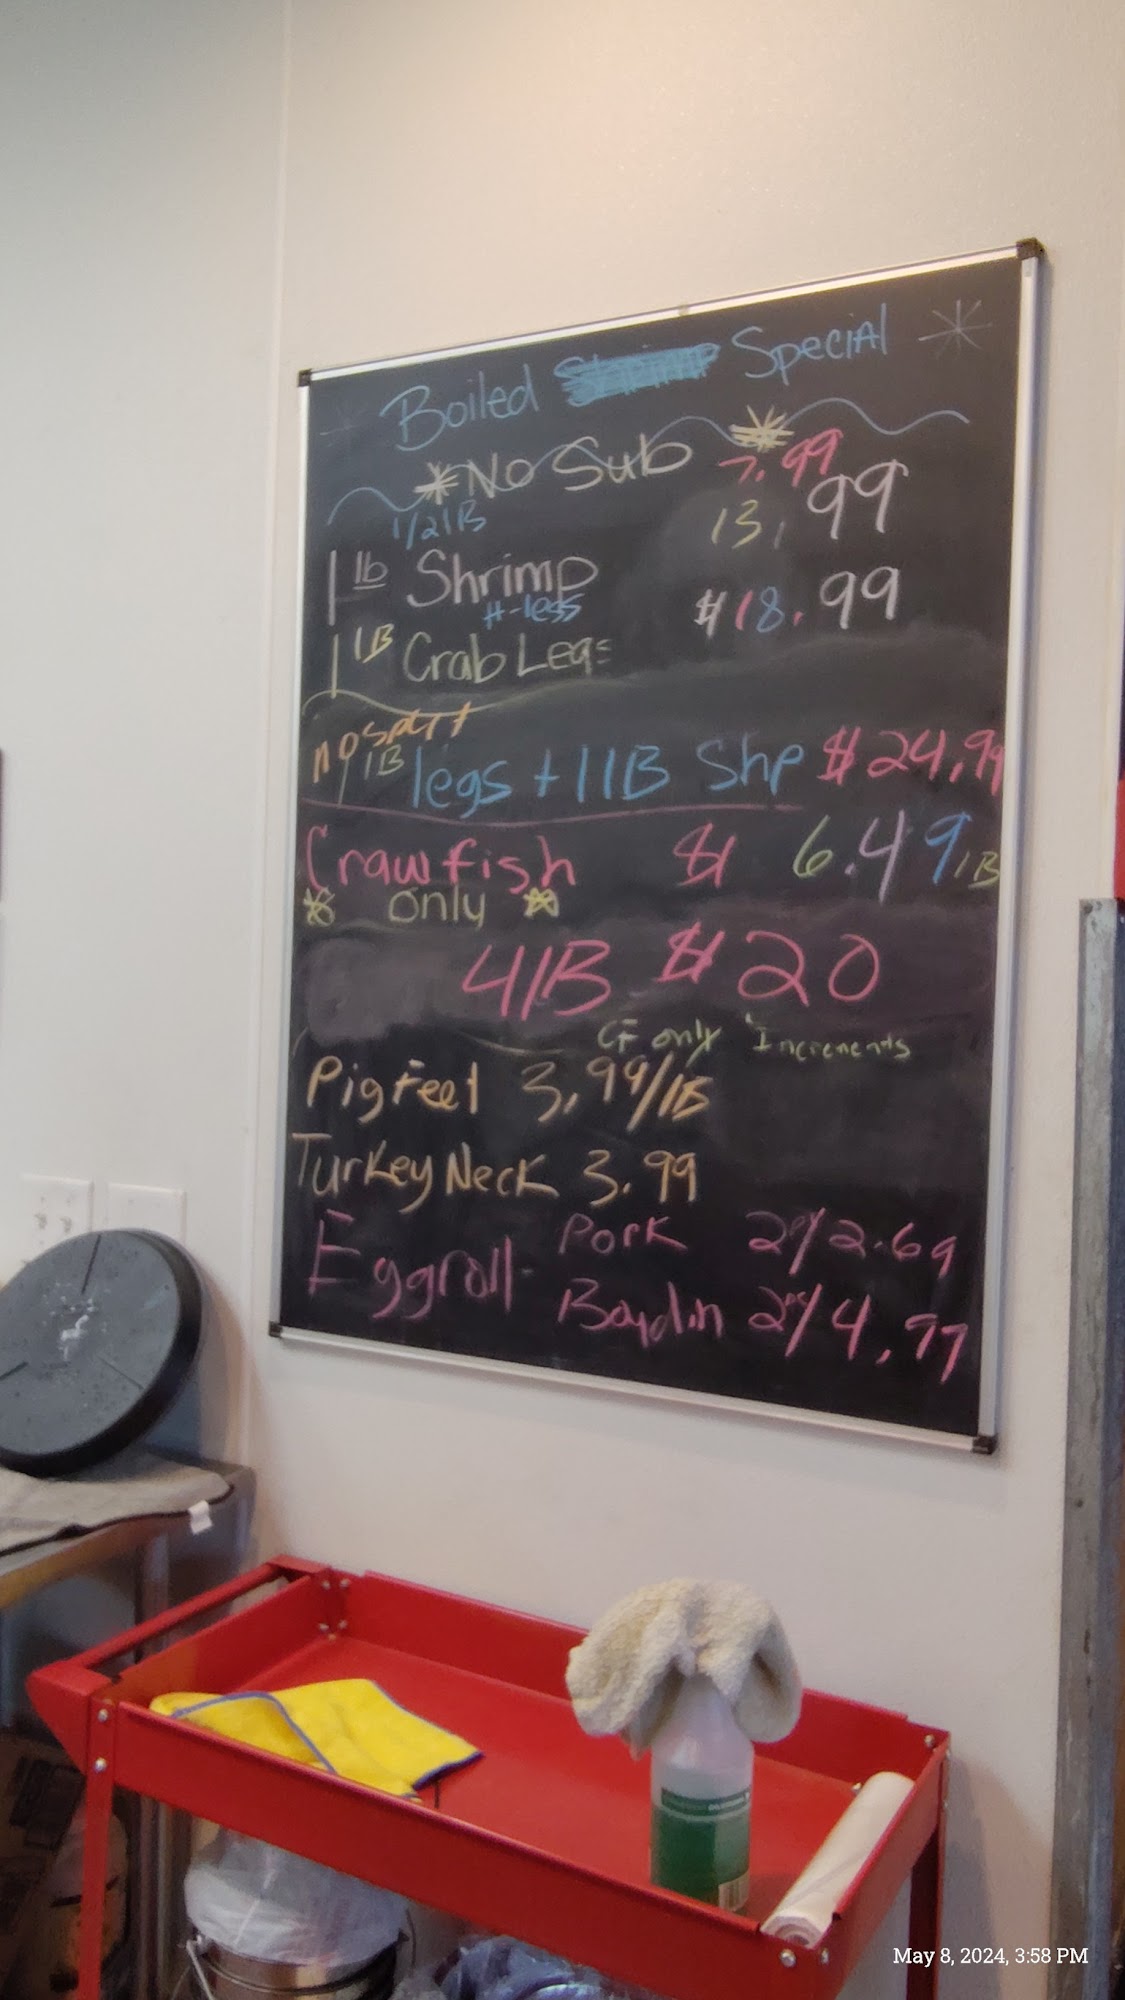 Boiled Shrimp Special
No Sub 7.99
1/2 lB 13.99
1 lb Shrimp
H-less $18.99
1 1B Crab Legs
no split
1B legs + 1 lB Shp $24.99
Crawfish $ 6.49 lB
only
4 lB $20
CF only Increments
Pig Feet 3.99/lB
Turkey Neck 3.99
Eggroll- Pork 2pc/2.69
Boudin 2pc/4.
May 8, 2024, 3:58 PM